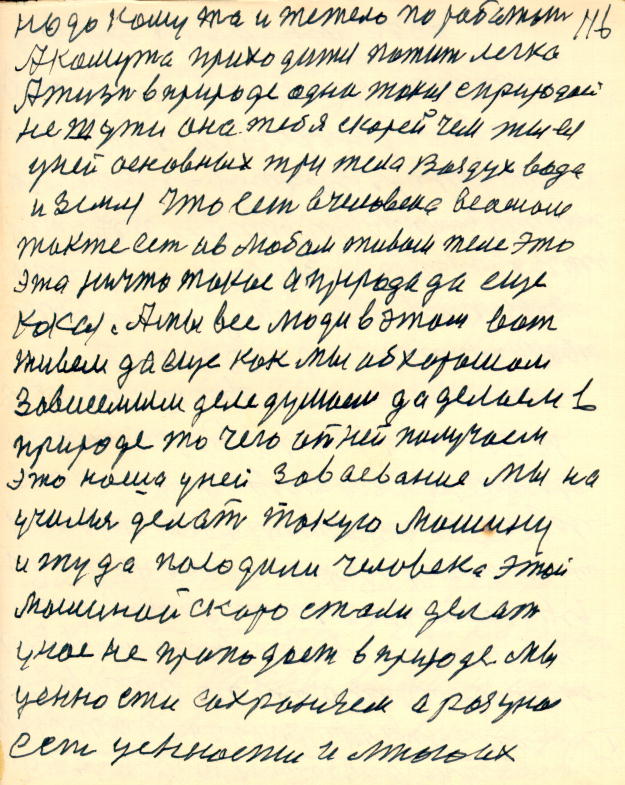 надо кому та и тежело поработат 116
А кому та приходитя потит легко
А жизн в природе одна токая с природой
не шути она тебя скорей чем ты ея
уней основных три тела Воздух вода
и Земля Что Сест в человека
такжеест ив любом живом теле Это
эта ничто такое а природа да еще
кокая. Амы все люди в этом вот
живем да еще как мы об хорошом
Зависемыи деле думаем да делаем в
природе то чего от ней получаем
это наша уней Заваевание Мы на
учился делат такую Машину
и туда посодили человека этой
машиной скоро стали делат
унас не пропадает в природе мы
ценности сохраняем а разума
Сест ценности и